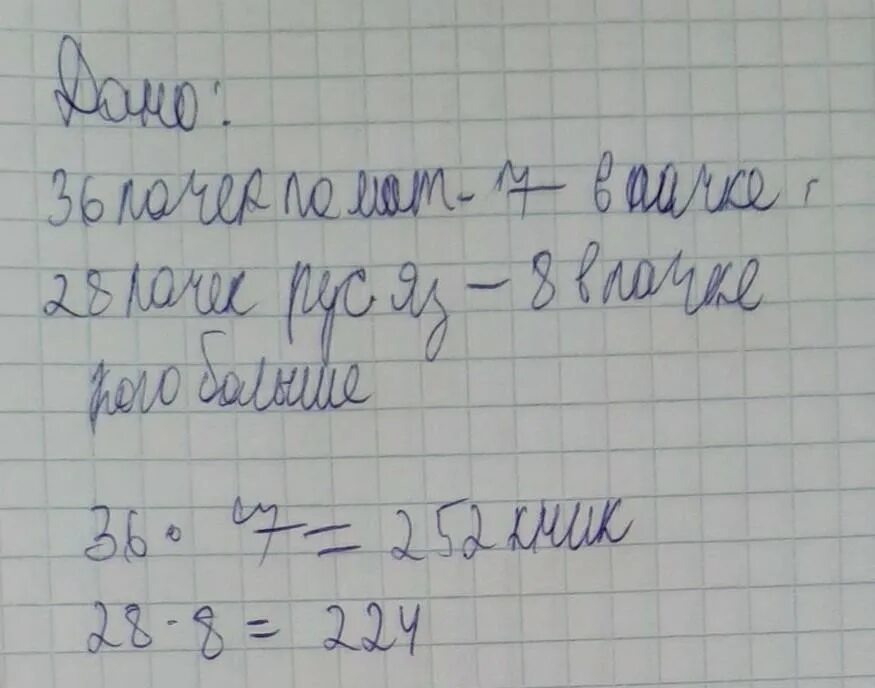 Дано:
36 пачек по мат - 7 в пачке
28 пачек рус яз - 8 в пачке
кого больше
36 · 7 = 252 книж
28 · 8 = 224